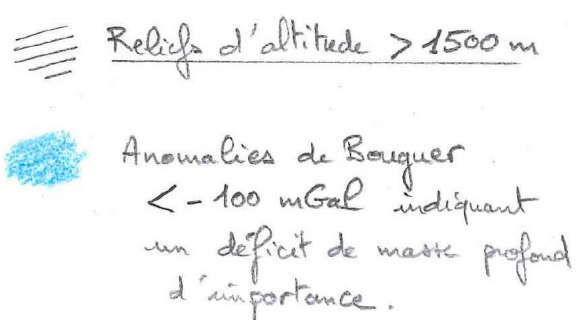 Reliefs d'altitude > 1500 m
Anomalies de Bouguer
< - 100 mGal indiquant
un déficit de masse profond
d'importance.